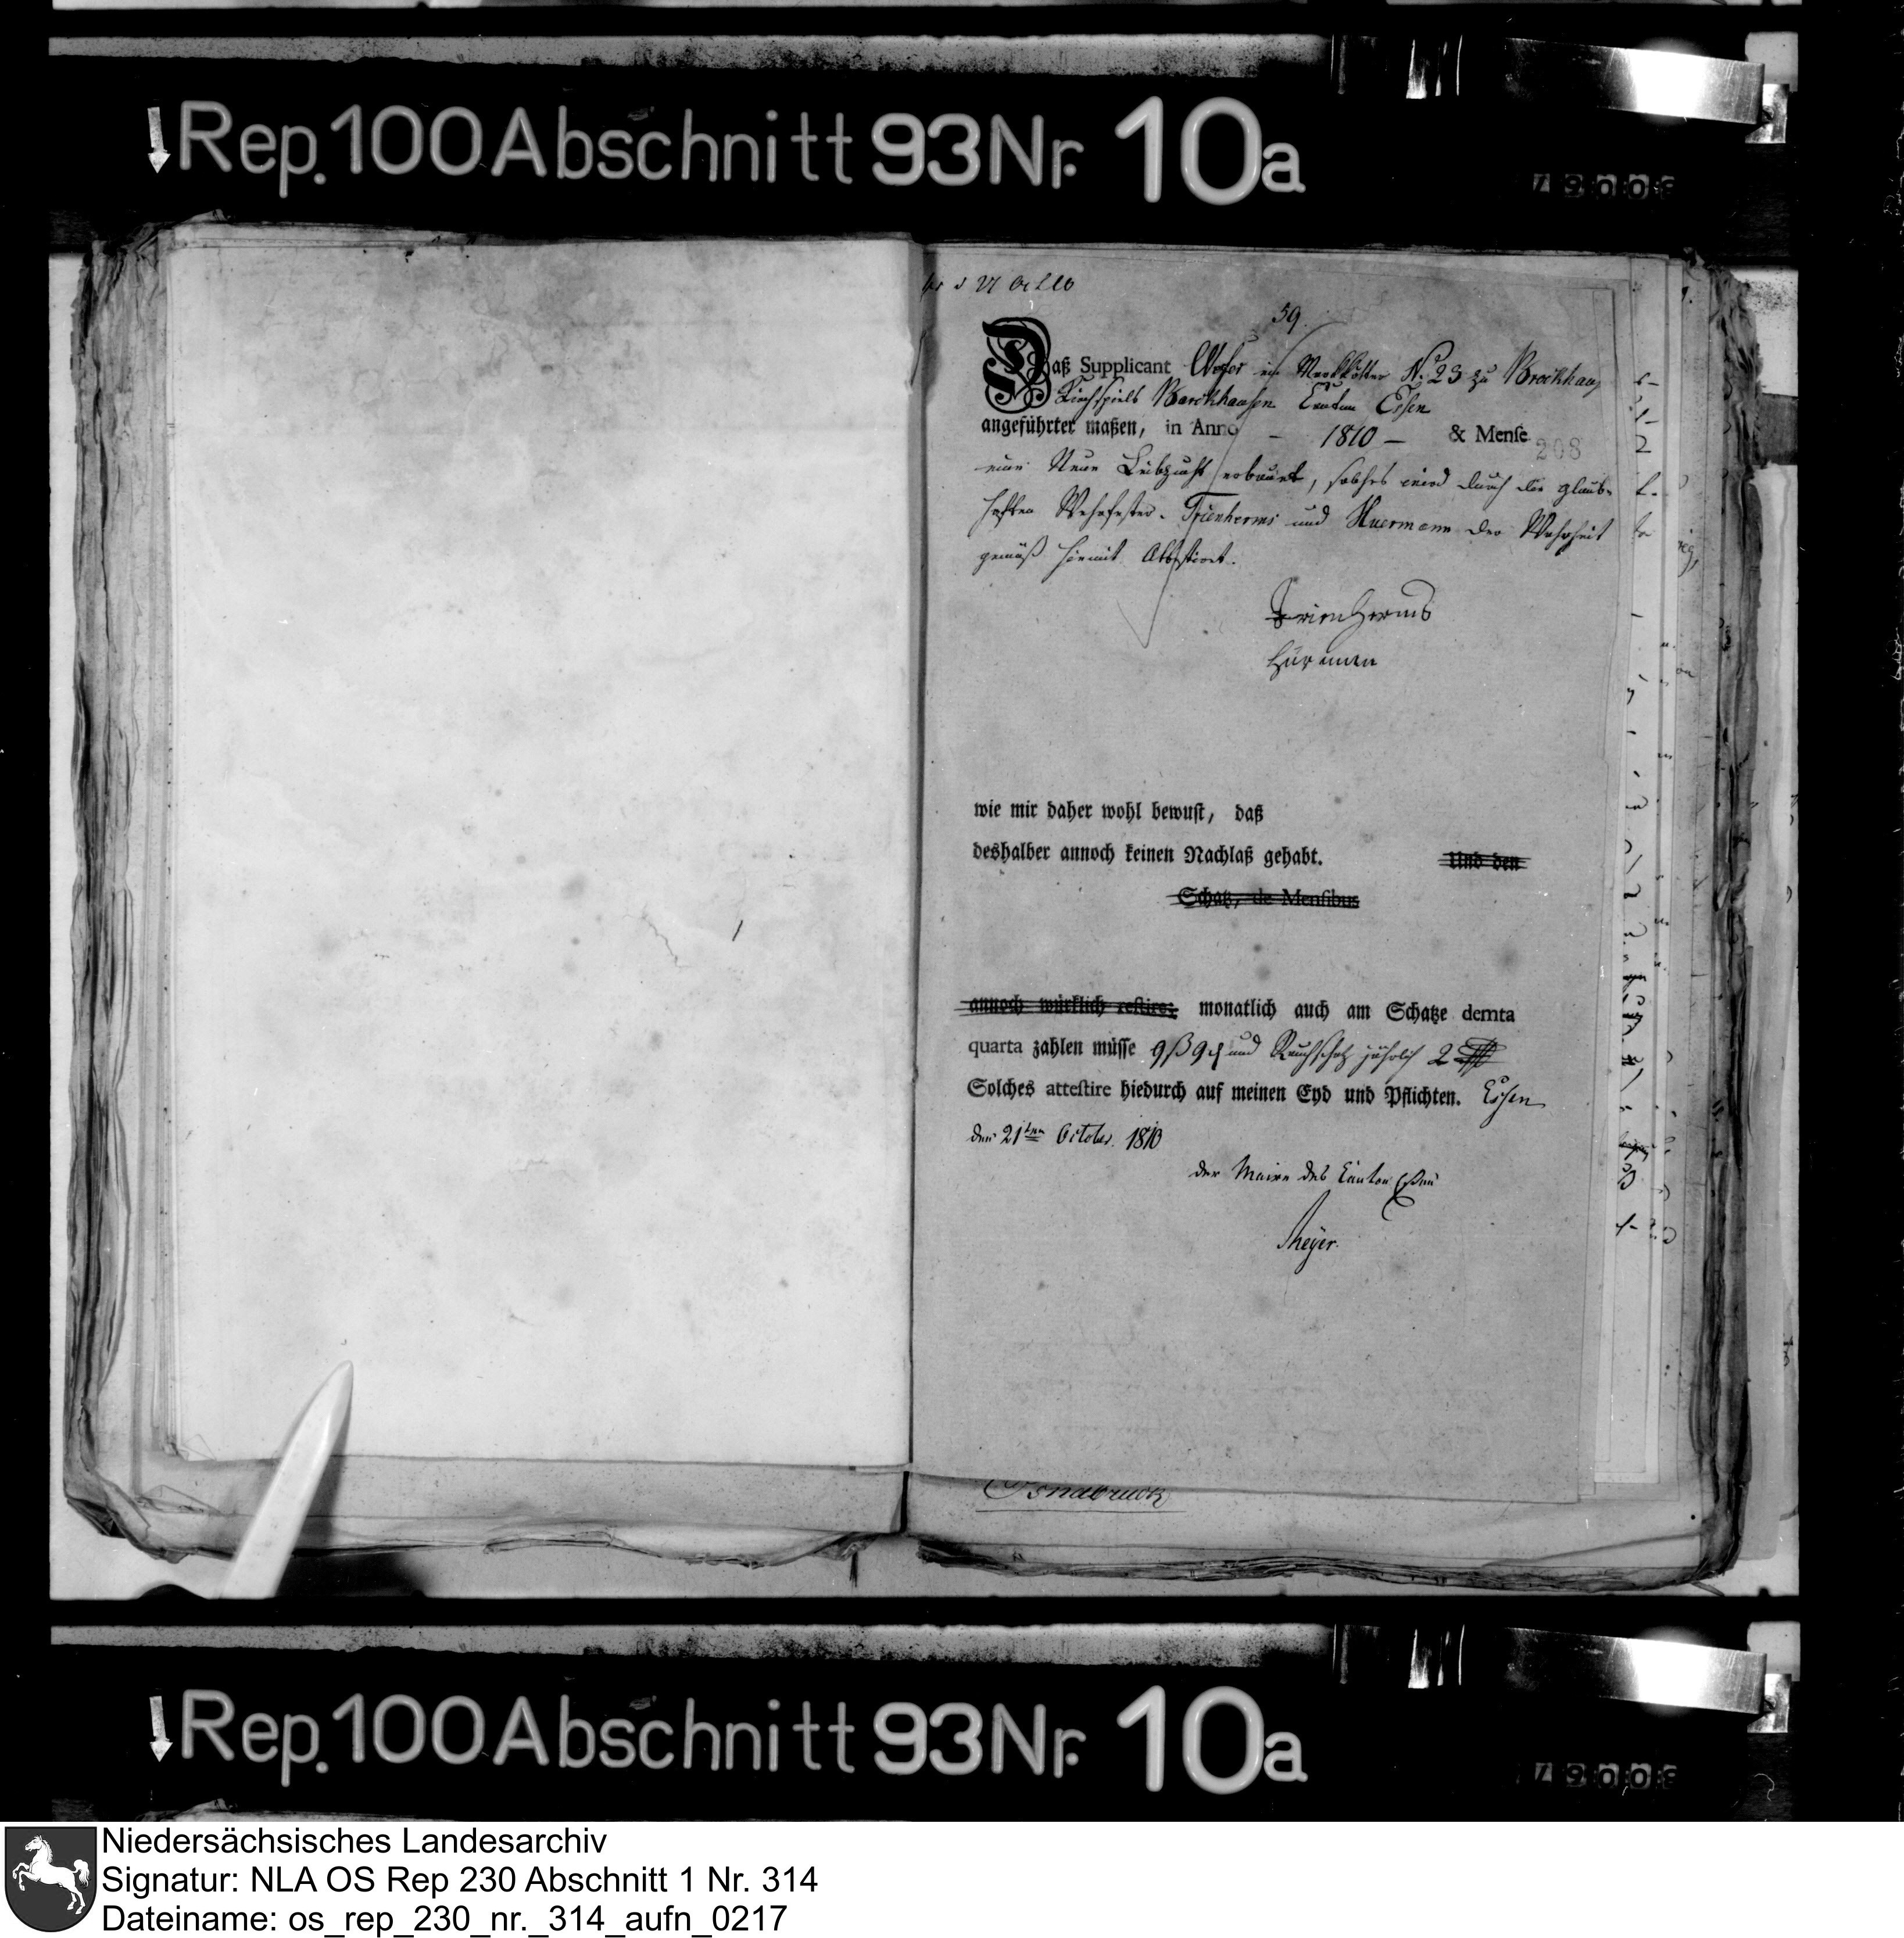 Rep. 100 Abschnitt 93 Nr. 10a
59
Daß Supplicant ein Markkötter No. 23 zu Brockhaus
Kirchspiels Barckhausen Canton Essen
angeführter maßen, in Anno – 1810 – & Menſe
208
eine Neue Leibzucht erbauet, solches wird durch die glaub-
haften Wehrfester Trienherms und Huermann der Wahrheit
gemäß hiemit Attestirt.
Trienherms
Hürmann
wie mir daher wohl bewuſt, daß
deshalber annoch keinen Nachlaß gehabt. Und den
Schatz, de Menſibus
annoch würklich reſtire; monatlich auch am Schatze demta
quarta zahlen müſſe 9 ß 9 ₰ und Rauchschatz jährlich 2
Solches atteſtire hiedurch auf meinen Eyd und Pflichten. Essen
den 21ten October 1810
der Maire des Canton Essen
Meyer
Osnabruck
Rep. 100 Abschnitt 93 Nr. 10a
Niedersächsisches Landesarchiv
Signatur: NLA OS Rep 230 Abschnitt 1 Nr. 314
Dateiname: os_rep_230_nr._314_aufn_0217